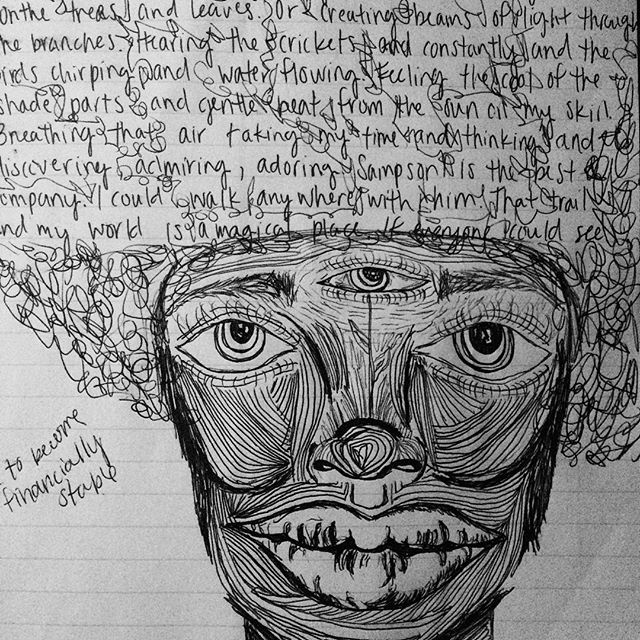 on the trees and leaves. Or creating beams of light through
the branches. Hearing the crickets and constantly and the
birds chirping and water flowing. Feeling the cool of the
shade parts and gentle heat from the sun on my skin.
Breathing that air taking my time and thinking and
discovering, admiring, adoring. Sampson is the best
company. I could walk anywhere with him. That trail
and my world is a magical place if everyone could see
to become
financially
stable